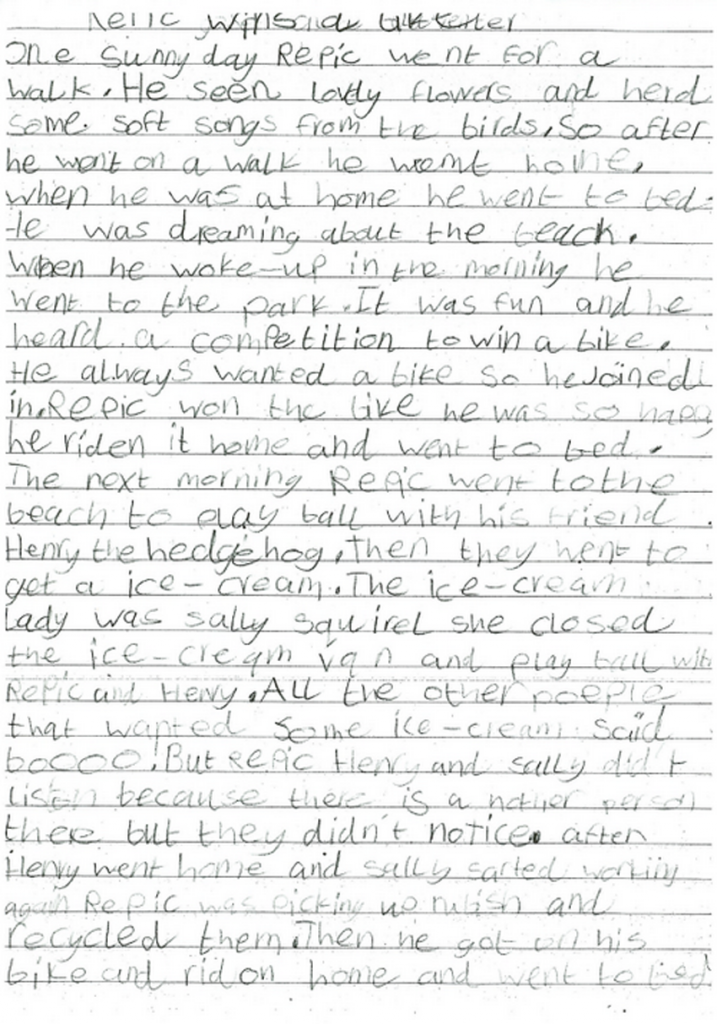 One sunny day Repic went for a
walk. He seen lovely flowers and herd
some soft songs from the birds. So after
he went on a walk he went home.
when he was at home he went to bed.
He was dreaming about the beach.
When he woke-up in the morning he
went to the park. It was fun and he
heard a competition to win a bike.
He always wanted a bike so he Joined
in. Repic won the bike he was so happy
he riden it home and went to bed.
The next morning Repic went to the
beach to play ball with his friend
Henry the hedgehog. Then they went to
get a ice-cream. The ice-cream
lady was sally squirel she closed
the ice-cream van and play ball with
Repic and Henry. All the other poeple
that wanted some ice-cream said
boooo! But Repic Henry and sally did't
listen because there is a nother person
there but they didn't notice. after
Henry went home and sally sarted working
again Repic was picking up rubish and
recycled them. Then he got on his
bike and rid on home and went to bed.